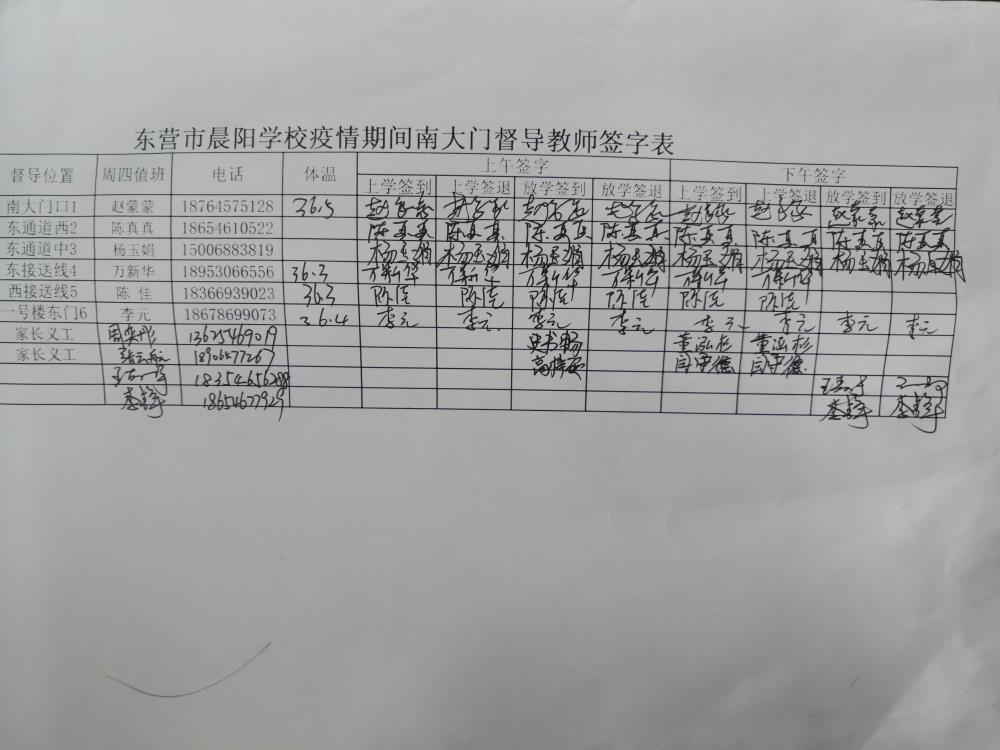 东营市晨阳学校疫情期间南大门督导教师签字表
督导位置 周四值班 电话 体温 上午签字 下午签字
上学签到 上学签退 放学签到 放学签退 上学签到 上学签退 放学签到 放学签退
南大门口1 赵蒙蒙 18764575128 36.5 赵蒙蒙 赵蒙蒙 赵蒙蒙 赵蒙蒙 赵蒙蒙 赵蒙蒙 赵蒙蒙 赵蒙蒙
东通道西2 陈真真 18654610522 陈真真 陈真真 陈真真 陈真真 陈真真 陈真真 陈真真
东通道中3 杨玉娟 15006883819 杨玉娟 杨玉娟 杨玉娟 杨玉娟 杨玉娟 杨玉娟 杨玉娟 杨玉娟
东接送线4 万新华 18953066556 36.3 万新华 万新华 万新华 万新华 万新华 万新华
西接送线5 陈 佳 18366939023 36.3 陈佳 陈佳 陈佳 陈佳 陈佳 陈佳
一号楼东门6 李元 18678699073 36.4 李元 李元 李元 李元 李元 李元 李元 李元
家长义工 13625469019 董泓杉 董泓杉
家长义工 闫守德 闫守德
18354656288
18654677929